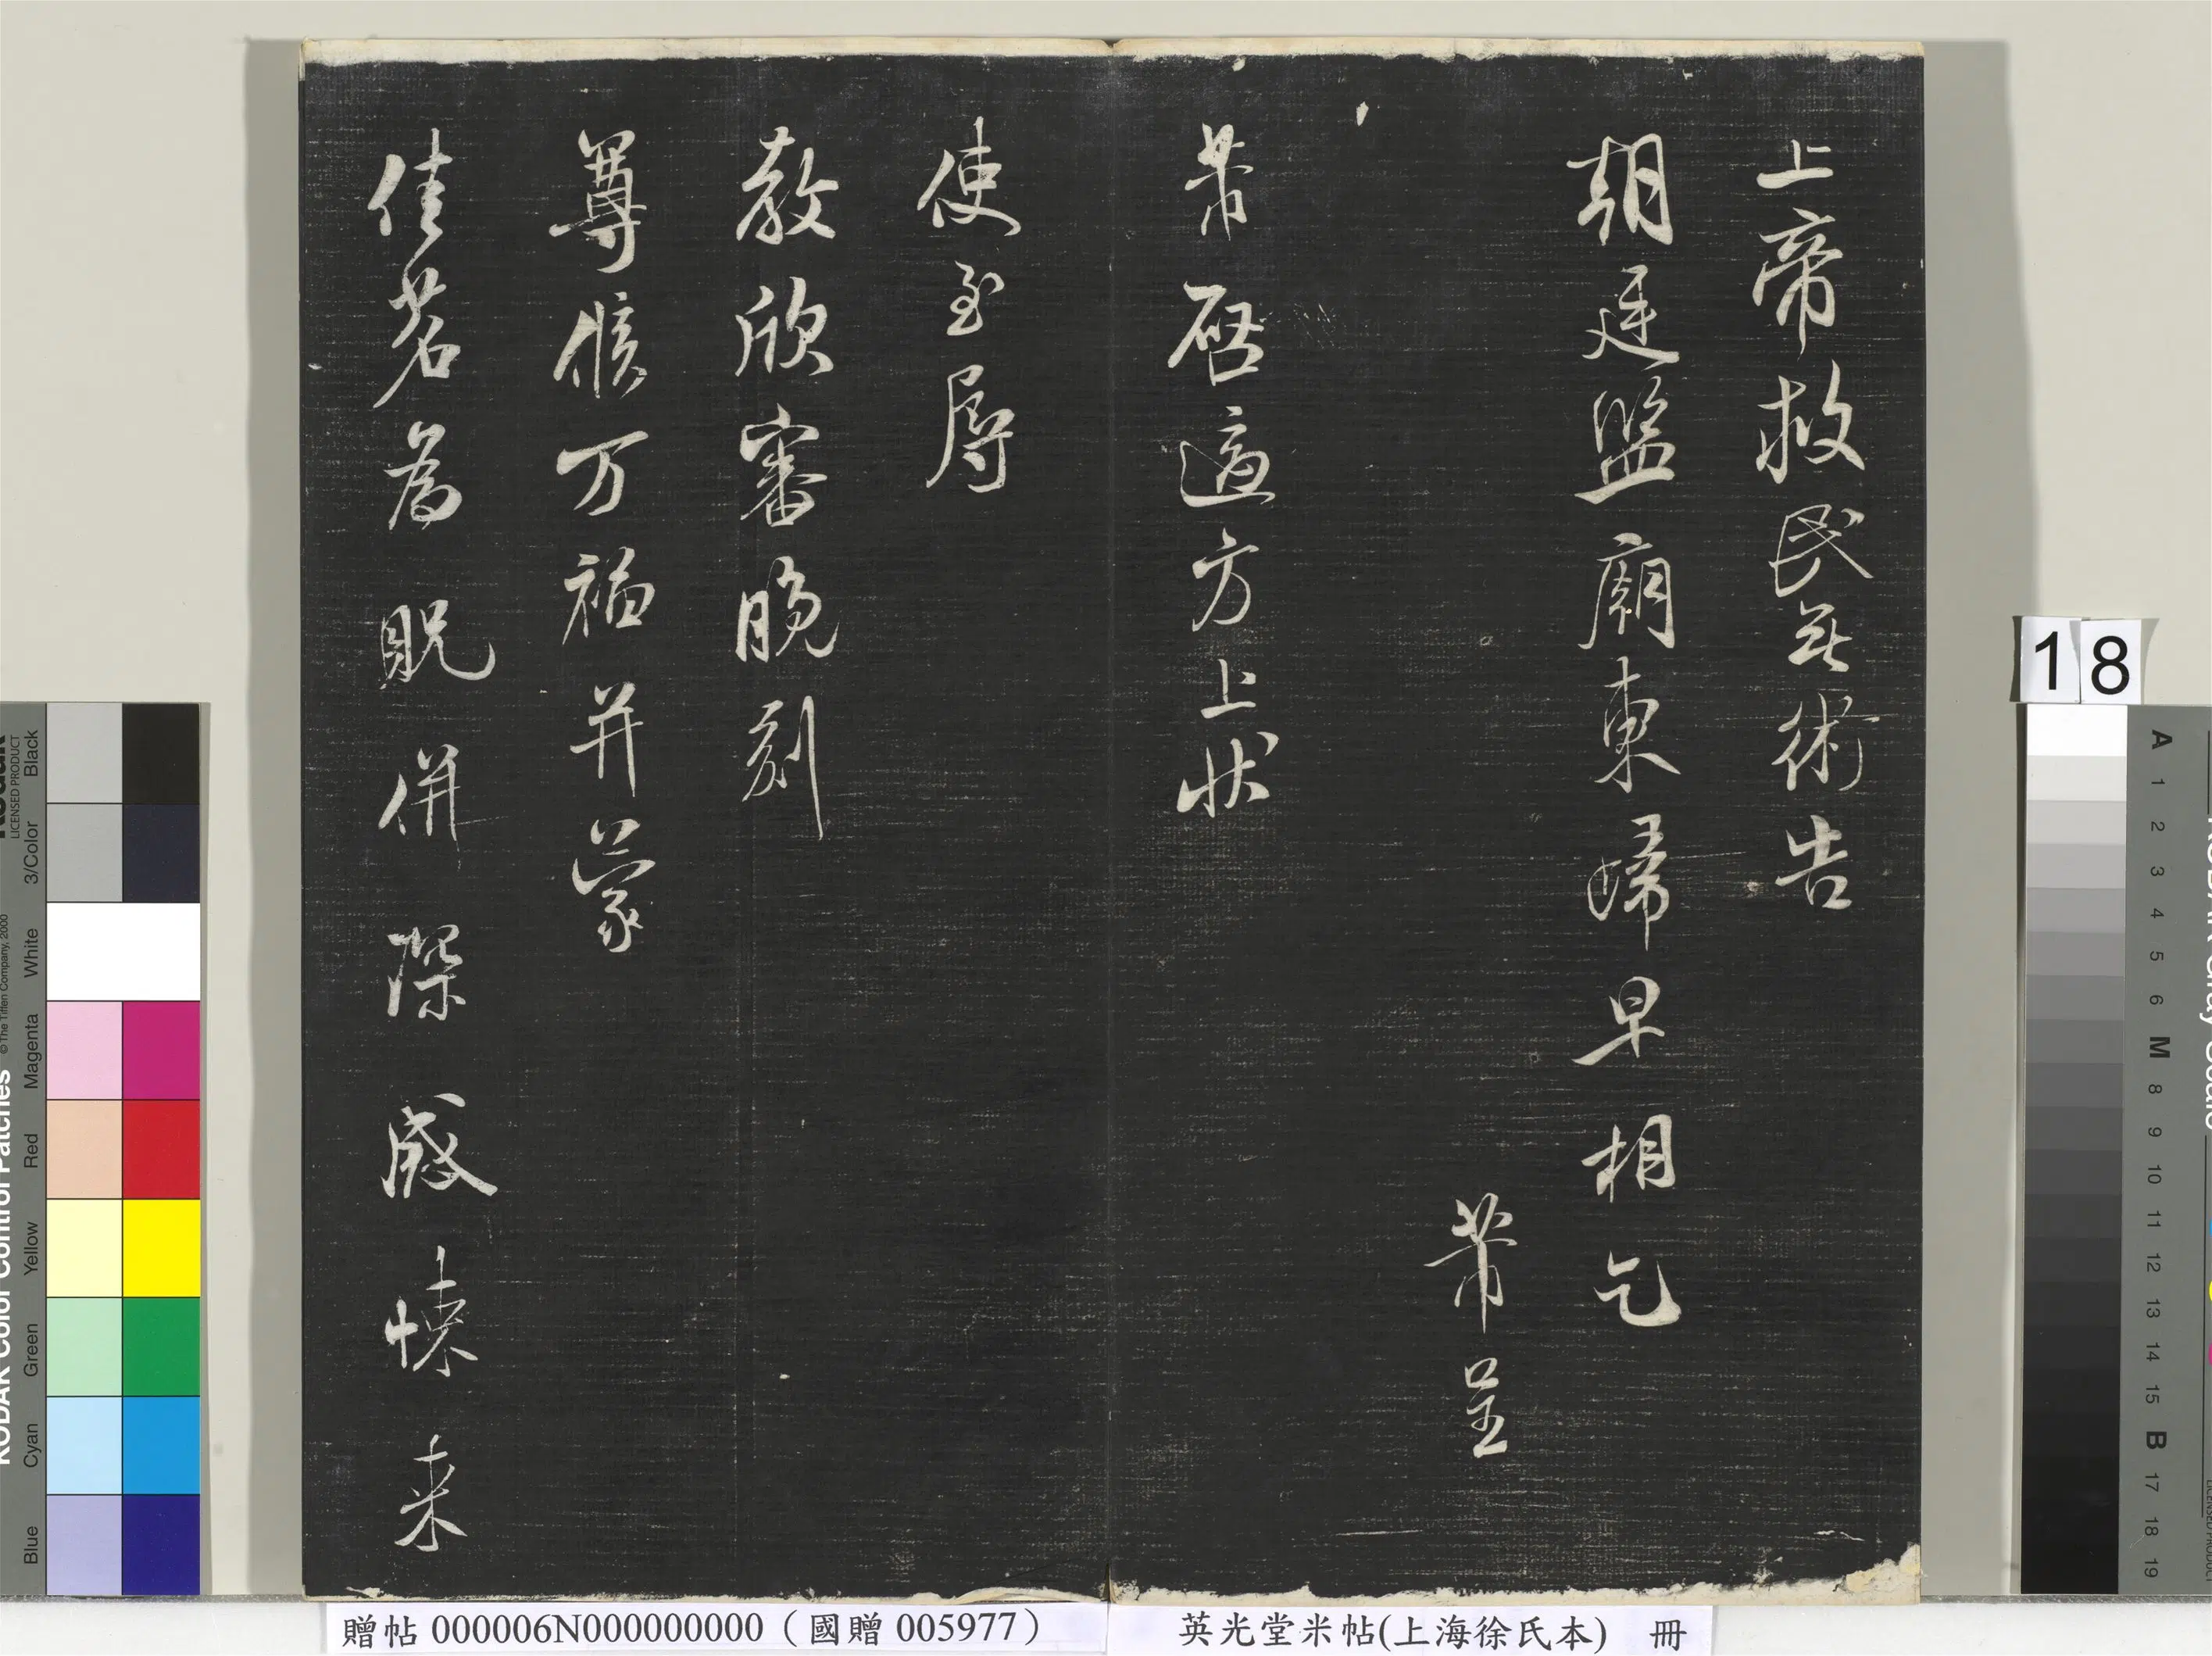 上帝救民無術告
朝廷監廟東歸早相乞
芾呈
芾啓適方上狀
使至辱
教欣審晚刻
尊候万福并蒙
佳茗為貺併深感悚来
18
贈帖 000006N000000000（國贈 005977）
英光堂米帖(上海徐氏本) 冊
KODAK Color Control Patches
LICENSED PRODUCT
© The Tiffen Company, 2000
Blue Cyan Green Yellow Red Magenta White 3/Color Black
A 1 2 3 4 5 6 M 8 9 10 11 12 13 14 15 B 17 18 19